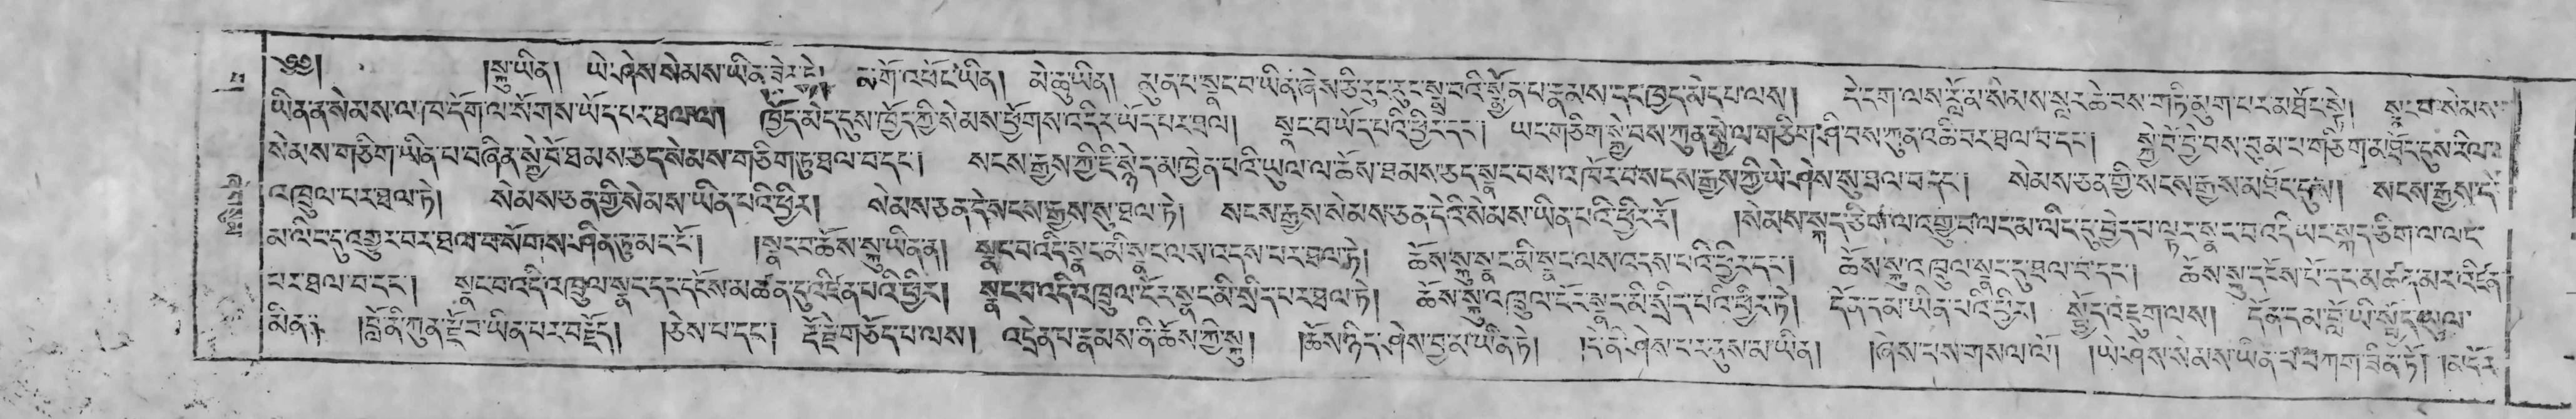 ༄༅། །སྐུ་ཡིན། ཡེ་ཤེས་སེམས་ཡིན་ཟེར་ན་གོ་འཕང་ཡིན། མེ་ཆུ་ཡིན། མུན་པ་སྣང་བ་ཡིན་ཞེས་ཅི་རུང་རུང་སྨྲ་བའི་སྨྱོན་པ་རྣམས་དང་ཁྱད་མེད་པ་ལས། དེ་དག་ལས་རློམ་སེམས་སྐུར་ཆེ་བས་གཏི་མུག་པར་མཐོང་སྟེ། སྣང་བ་སེམས་
ཡིན་ན་སེམས་ལ་ཁ་དོག་ལ་སོགས་ཡོད་པར་ཐལ་ལ། ཁྱོད་མེད་དུས་ཁྱོད་ཀྱི་སེམས་ཕྱོགས་འདིར་ཡོད་པར་ཐལ། སྣང་བ་ཡོད་པའི་ཕྱིར་དང་། ཡང་གཅིག་སྐྱེ་བས་ཀུན་སྐྱེ་ལ་གཅིག་ཤི་བས་ཀུན་འཆི་བར་ཐལ་བ་དང་། སྐྱེ་བོ་བྱེ་བས་བུམ་པ་གཅིག་མཐོང་དུས་རིལ་
སེམས་གཅིག་ཡིན་པ་བཞིན་སྐྱེ་བོ་ཐམས་ཅད་སེམས་གཅིག་ཏུ་ཐལ་བ་དང་། སངས་རྒྱས་ཀྱི་ཇི་སྙེད་མཁྱེན་པའི་ཡུལ་ལ་ཆོས་ཐམས་ཅད་སྣང་བས་འཁོར་བ་སངས་རྒྱས་ཀྱི་ཡེ་ཤེས་སུ་ཐལ་བ་དང་། སེམས་ཅན་གྱི་སངས་རྒྱས་མཐོང་དུས། སངས་རྒྱས་དེ་
འཁྲུལ་པར་ཐལ་ཏེ། སེམས་ཅན་གྱི་སེམས་ཡིན་པའི་ཕྱིར། སེམས་ཅན་དེ་སངས་རྒྱས་སུ་ཐལ་ཏེ། སངས་རྒྱས་སེམས་ཅན་དེའི་སེམས་ཡིན་པའི་ཕྱིར་རོ། །སེམས་སྐད་ཅིག་ལ་འགྱུ་བ་ལ་དམ་ལིང་དུ་བྱེད་པ་ལྟར་སྣང་བ་འདི་ཡང་སྐད་ཅིག་ལ་ལང་
མ་ལིང་དུ་འགྱུར་བར་ཐལ་བ་སོགས་ཤིན་ཏུ་མང་ངོ། །སྣང་བ་ཆོས་སྐུ་ཡིན་ན། སྣང་བ་འདི་སྣང་མི་སྣང་ལས་འདས་པར་ཐལ་ཏེ། ཆོས་སྐུ་སྣང་མི་སྣང་ལས་འདས་པའི་ཕྱིར་དང་། ཆོས་སྐུ་འཁྲུལ་སྣང་དུ་ཐལ་བ་དང་། ཆོས་སྐུ་དངོས་པོ་དང་མཚན་མར་འཛིན་
པར་ཐལ་བ་དང་། སྣང་བ་འདི་འཁྲུལ་སྣང་དང་དངོས་མཚན་དུ་འཛིན་པའི་ཕྱིར། སྣང་བ་འདི་འཁྲུལ་ངོར་སྣང་མི་སྲིད་པར་ཐལ་ཏེ། ཆོས་སྐུ་འཁྲུལ་ངོར་སྣང་མི་སྲིད་པའི་ཕྱིར་ཏེ། དོན་དམ་ཡིན་པའི་ཕྱིར། སྤྱོད་འཇུག་ལས། དོན་དམ་བློ་ཡི་སྤྱོད་ཡུལ་
མིན། །བློ་ནི་ཀུན་རྫོབ་ཡིན་པར་བརྗོད། །ཅེས་པ་དང་། རྡོ་རྗེ་གཅོད་པ་ལས། འདྲེན་པ་རྣམས་ནི་ཆོས་ཀྱི་སྐུ། །ཆོས་ཉིད་ཤེས་བྱ་མ་ཡིན་ཏེ། །དེ་ནི་ཤེས་པར་ནུས་མ་ཡིན། །ཞེས་པས་གསལ་ལོ། །ཡེ་ཤེས་སེམས་ཡིན་པ་བཀག་ཟིན་ཏོ། །མདོར་